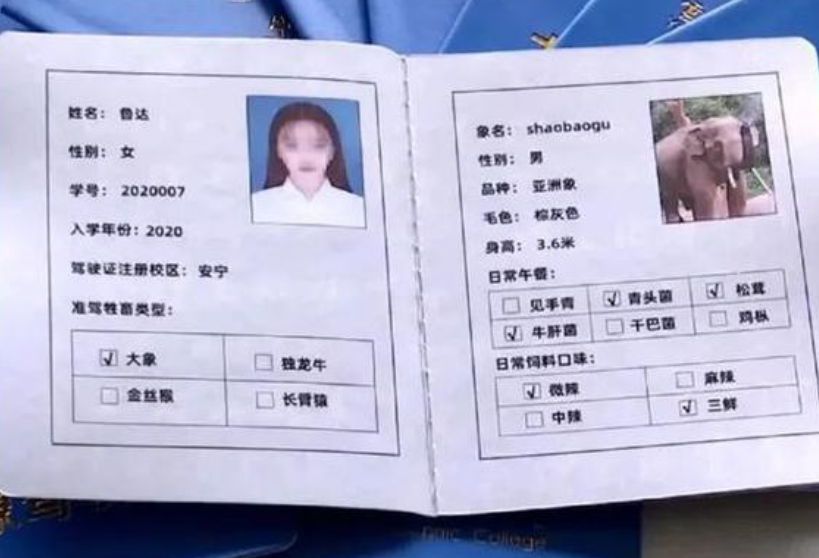 姓名：鲁达
性别：女
学号：2020007
入学年份：2020
驾驶证注册校区：安宁
准驾牲畜类型：
√ 大象 □ 独龙牛
□ 金丝猴 □ 长臂猿
象名：shaobaogu
性别：男
品种：亚洲象
毛色：棕灰色
身高：3.6米
日常午餐：
□ 见手青 √ 青头菌 √ 松茸
√ 牛肝菌 □ 干巴菌 □ 鸡枞
日常饲料口味：
√ 微辣 □ 麻辣
□ 中辣 √ 三鲜
College